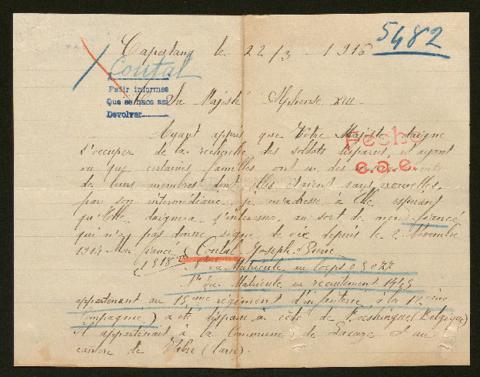 5482
Capestang le 22/3 - 1916
Coutal
Pedir informes
Que se nos
Devolver
Sa Majesté Alphonse XIII
Ayant appris que Votre Majesté daigne
s'occuper de la recherche des soldats disparus, et ayant
vu que certaines familles ont eu des
de leurs membres dont elles étaient sans nouvelles
par son intermédiaire, je m'adresse à Elle espérant
qu'Elle daignera s'intéresser au sort de mon fiancé
qui n'a pas donné signe de vie depuis le 2 Novembre
1914 Mon fiancé (Coutal Joseph Pierre
Matricule au corps
No du Matricule au recrutement 1743
appartenant au 15ème régiment d'infanterie à la
Compagnie) a été disparu à côté de Boesinghe (Belgique)
Il appartenait à la Commune de Lacaze et au
canton de Vabre (Tarn).
Fecha
c.a.e.